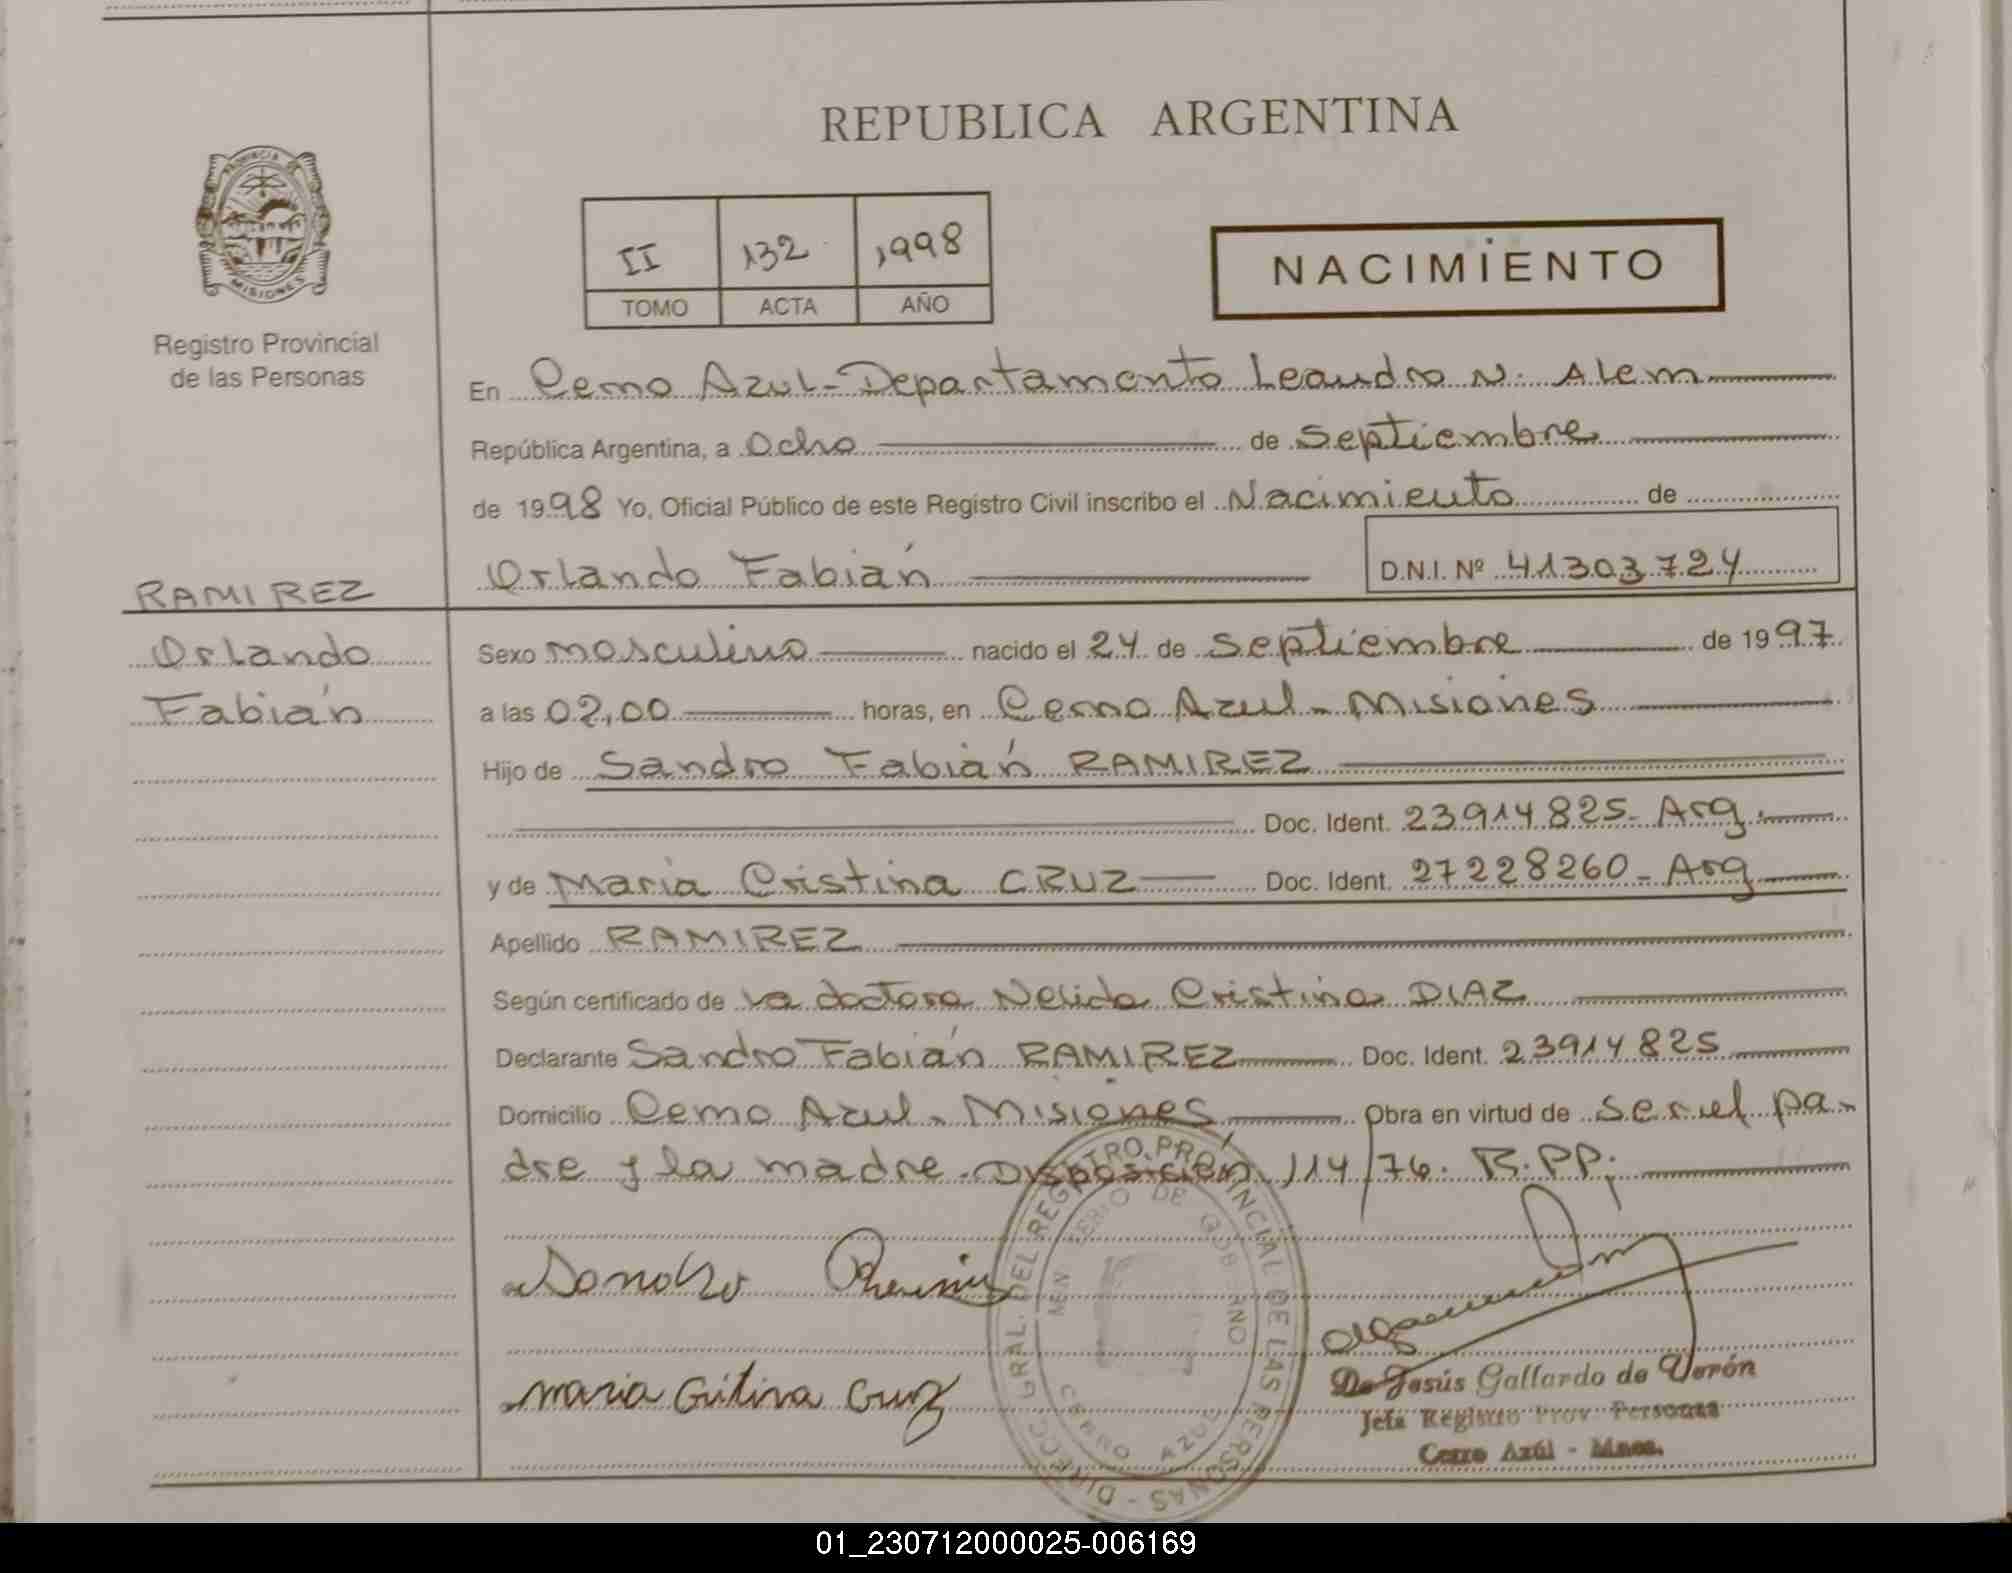 REPUBLICA ARGENTINA
PROVINCIA DE
MISIONES
Registro Provincial
de las Personas
II 132 1998
TOMO ACTA AÑO
NACIMIENTO
En Cerro Azul - Departamento Leandro N. Alem
República Argentina, a Ocho de Septiembre
de 1998 Yo, Oficial Público de este Registro Civil inscribo el Nacimiento de
Orlando Fabián D.N.I. Nº 41303724
RAMIREZ
Orlando
Fabián
Sexo masculino nacido el 24 de Septiembre de 1997
a las 02,00 horas, en Cerro Azul - Misiones
Hijo de Sandro Fabián RAMIREZ
Doc. Ident. 23914825 - Arg.
y de Maria Cristina CRUZ Doc. Ident. 27228260 - Arg
Apellido RAMIREZ
Según certificado de la doctora Nelida Cristina DIAZ
Declarante Sandro Fabián RAMIREZ Doc. Ident. 23914825
Domicilio Cerro Azul - Misiones Obra en virtud de ser el pa-
dre y la madre. Disposición 114/76. R.P.P.
Sandro
maria Cristina Cruz
DIRECC. GRAL. DEL REGISTRO PROVINCIAL DE LAS PERSONAS -
DE GOBIERNO
CERRO AZUL
De Jesús Gallardo de Verón
Jefa Registro Prov. Personas
Cerro Azúl - Mnes.
01_230712000025-006169